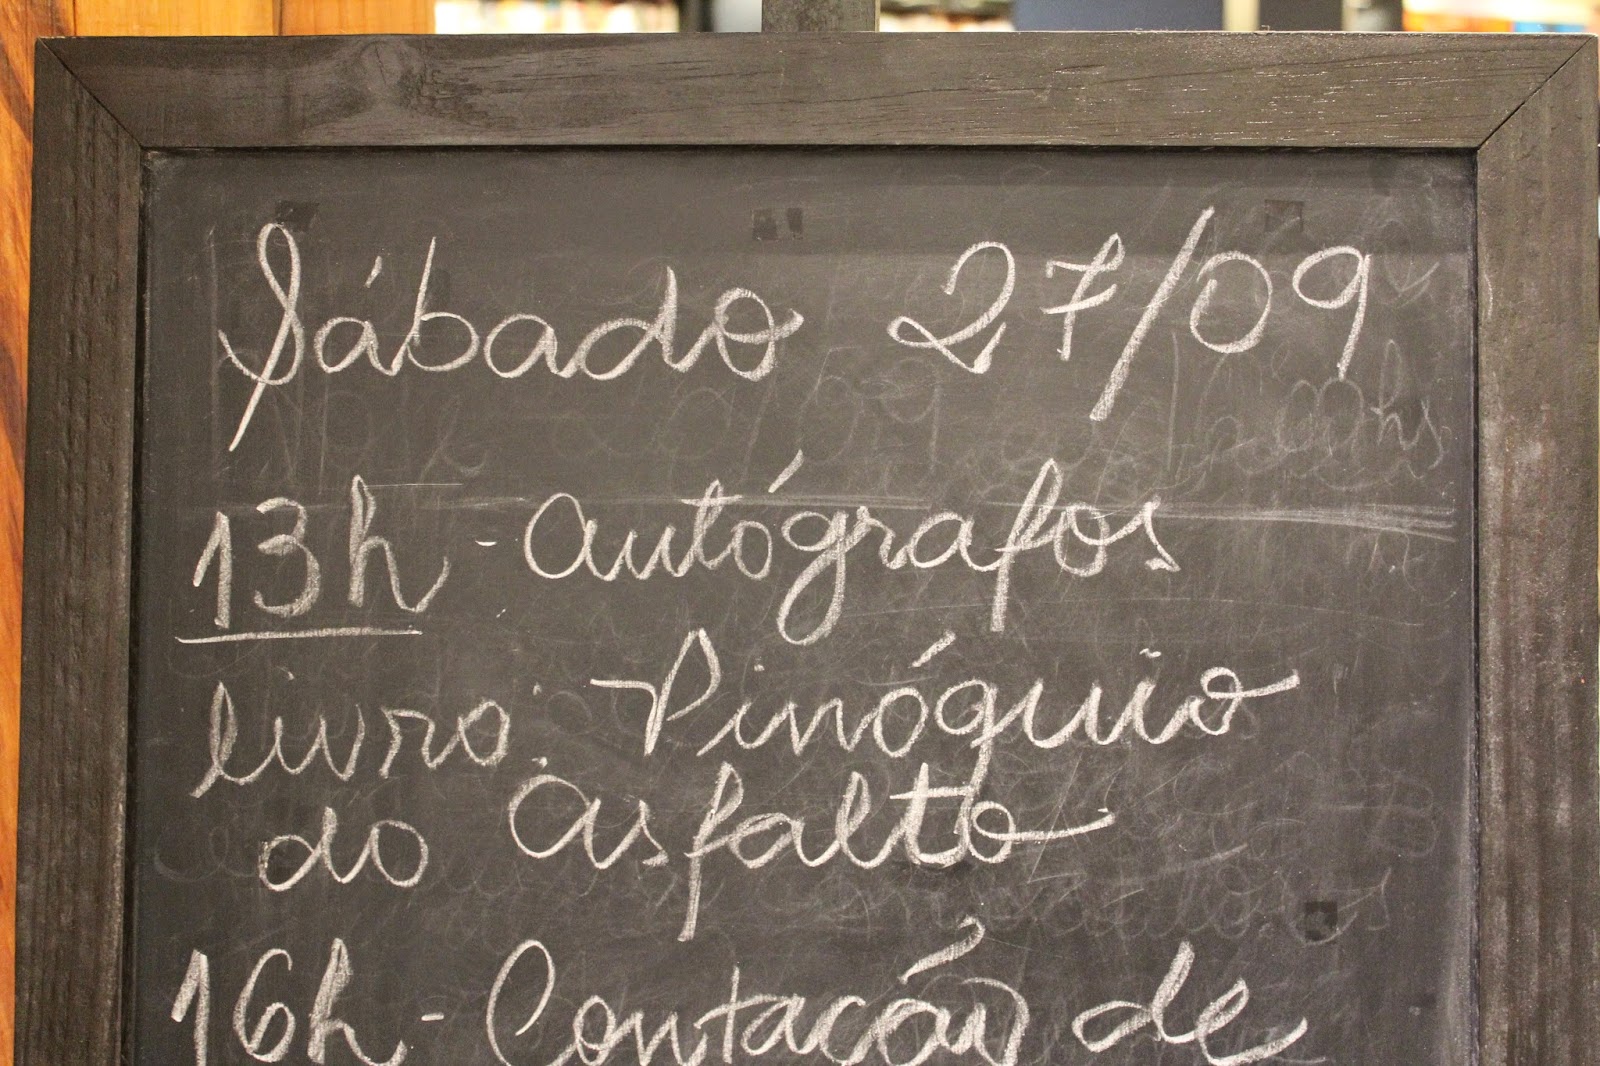 Sábado 27/09
13h - autógrafos
livro: Pinóquio
do asfalto
16h - Contação de